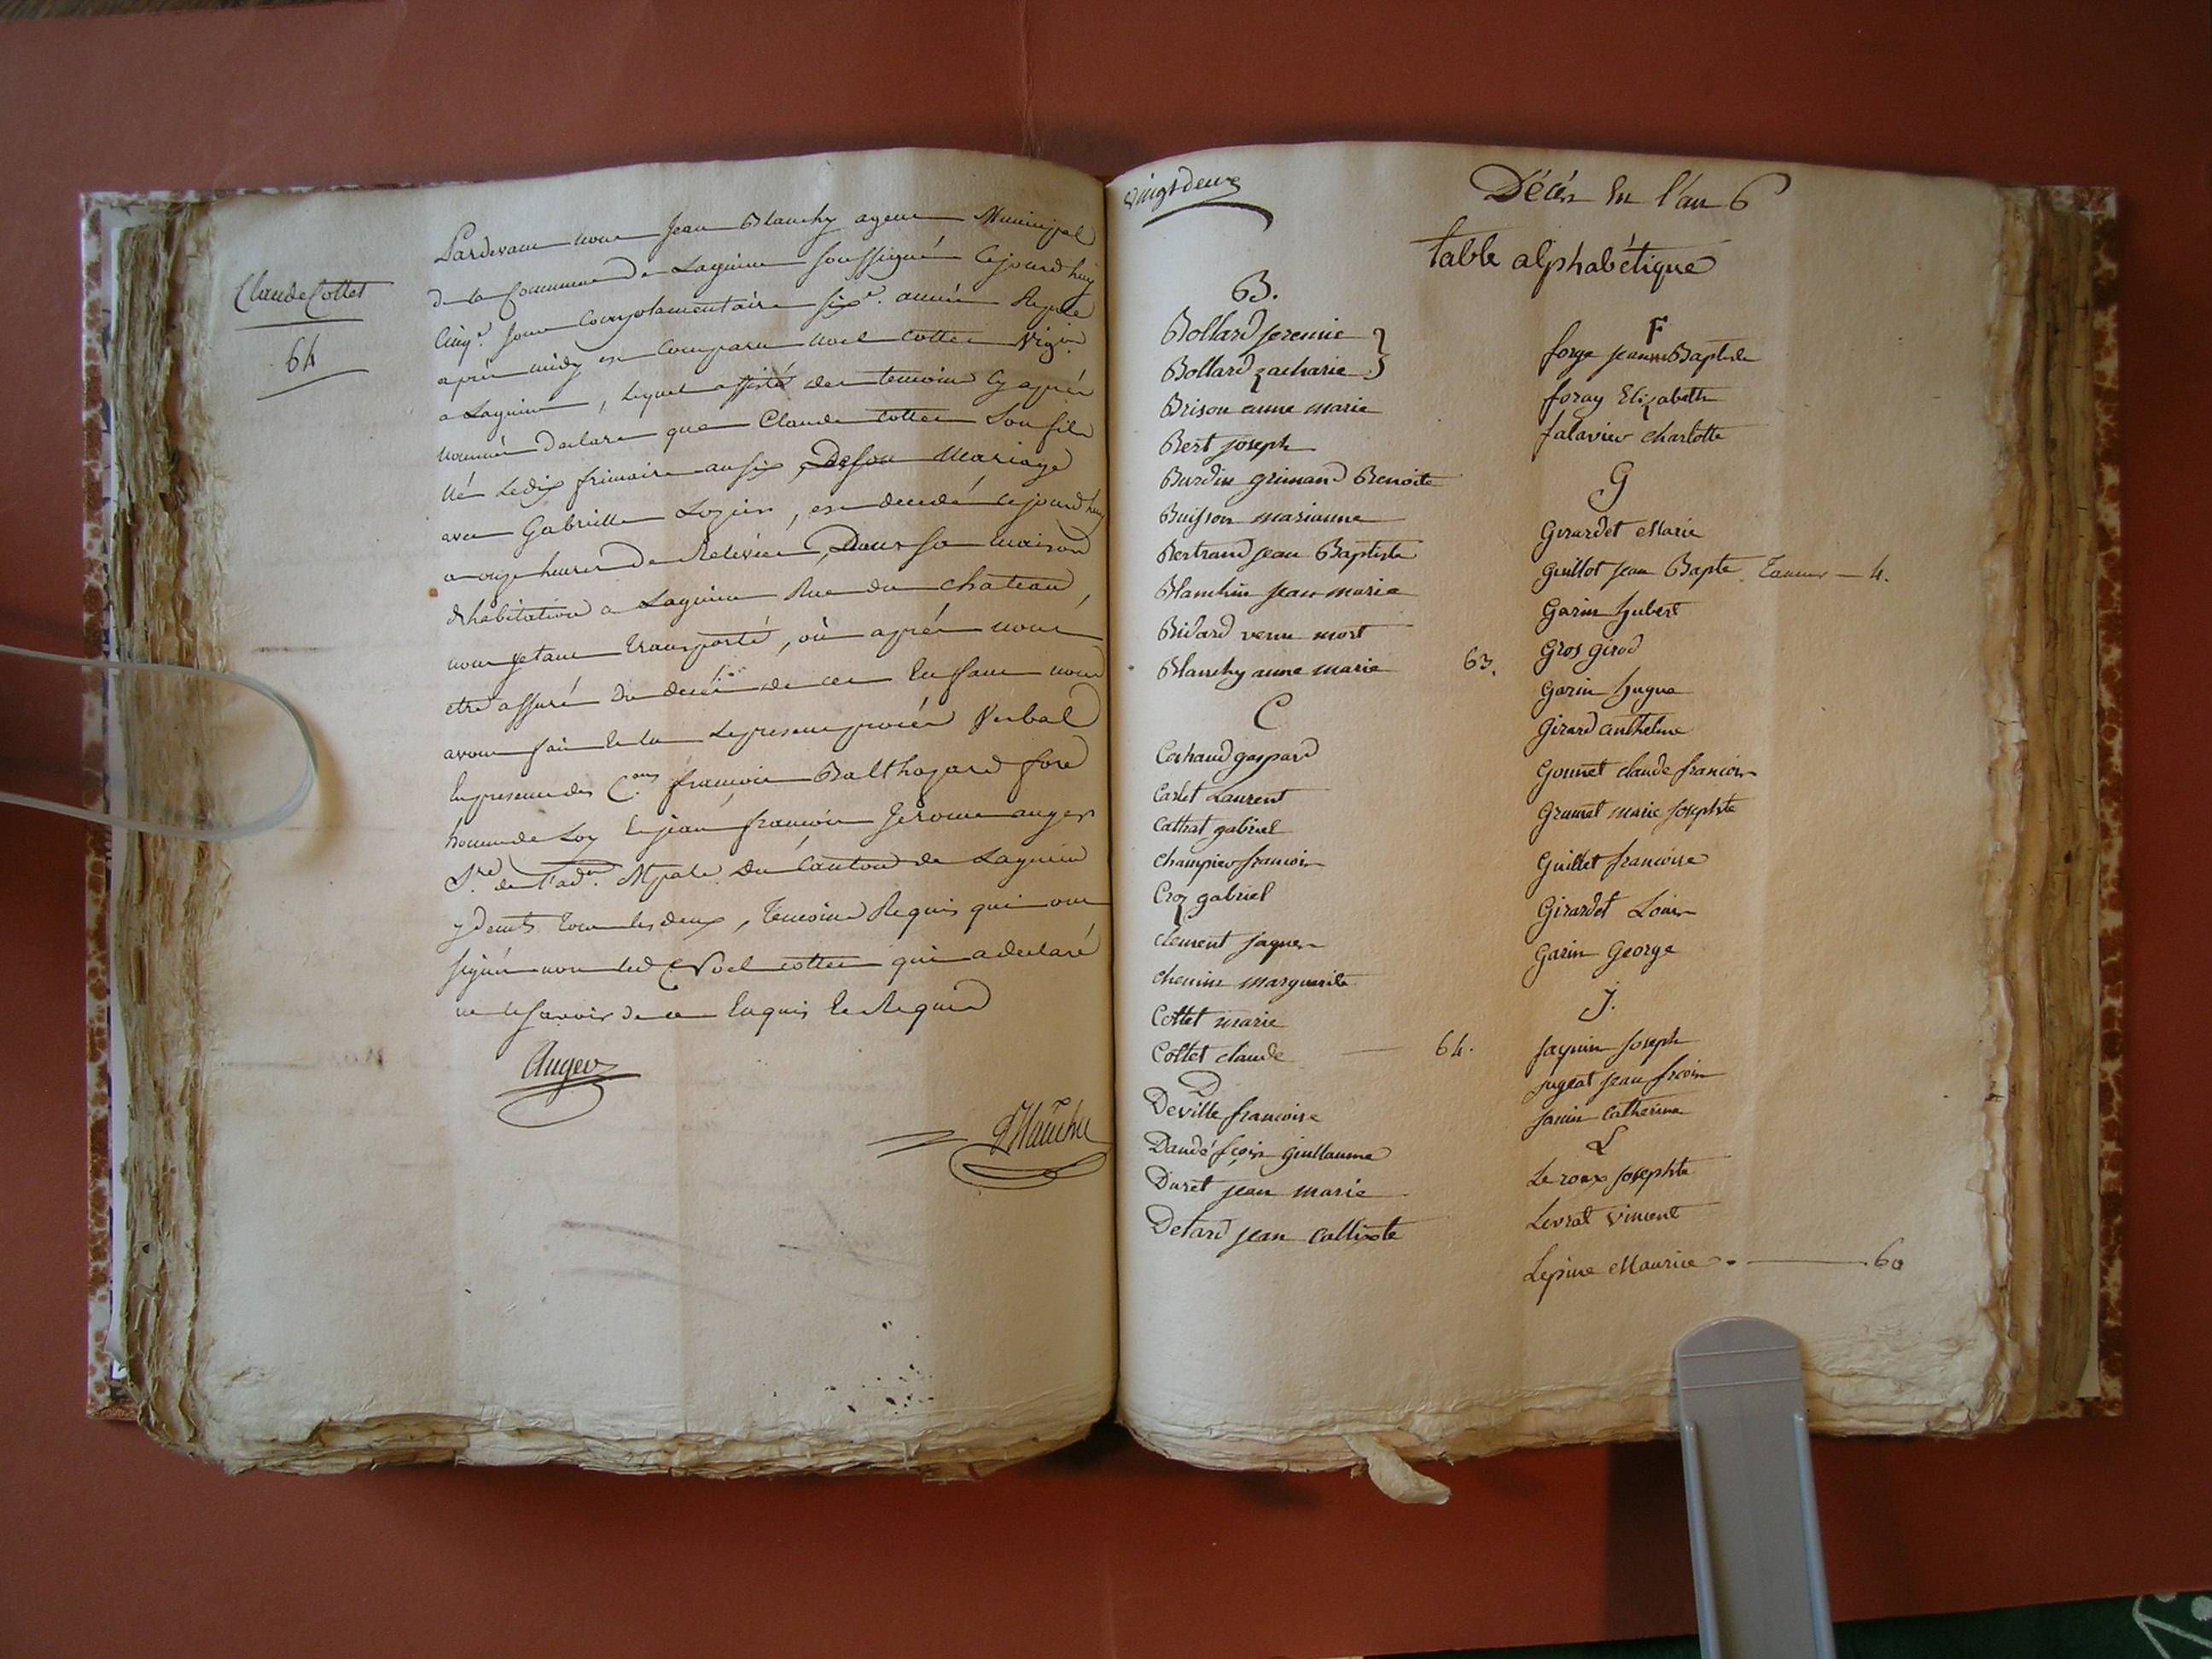 Claude Cottet
64
Pardevant nous Jean Blanchy agent Municipal
de la Commune de Lagnieu soussigné Cejourd'huy
Cinqe. jour Complementaire sixe. année Repule
après midy est Comparu Noel Cottet Vigon
a Lagnieu, lequel assisté des temoins Cy après
nommés declare que Claude Cottet Son fils
né Le dix frimaire an six, De son Mariage
avec Gabrielle Lozier, est decedé cejourd'huy
a onze heures de Relevée, Dans sa maison
d'habitation a Lagnieu Rue du chateau,
nous y etant transporté, où après nous
etre assuré du decès de cet Enfant nous
avons fait Et lu Le present procès Verbal
En presence des C.ens françois Balthazard fore
homme de Loy Et jean françois Jerome auger
S.re de l'adon. Mpale du Canton de Lagnieu
y demts tous les deux, temoins Requis qui ont
signé non led Noel cottet qui a declaré
ne le savoir de ce Enquis Et Requis
Auger
Blanchy
vingt deux
Décès En l'an 6
table alphabétique
B.
Bollard jeremie }
Bollard zacharie }
Brison anne marie
Bert joseph
Burdin grimand Benoite
Buisson marianne
Bertrand jean Baptiste
Blanchin jean marie
Bidard venu mort
Blanchy anne marie 63.
C
Cochaud gaspard
Carlet Laurent
Cattrat gabriel
Champier françois
Croz gabriel
Clement jaques
Chemin marguerite
Cottet marie
Cottet claude — 64.
D
Deville françoise
Daudé fçois guillaume
Duret jean marie
Detard jean callixte
F
forge jean Baptiste
foray Elizabeth
falavier charlotte
G
Girardet Marie
Guillot jean Bapte Taneur — 4.
Garin hubert
Gros girod
Garin hugue
Girard anthelme
Gonnet claude françois
Grumet marie josephte
Guillet françoise
Girardet Louis
Garin George
J.
Jaquin joseph
jugeat jean frcois
Janin catherine
L
Le roux josephte
Levrat vincent
Lepine Maurice — 60